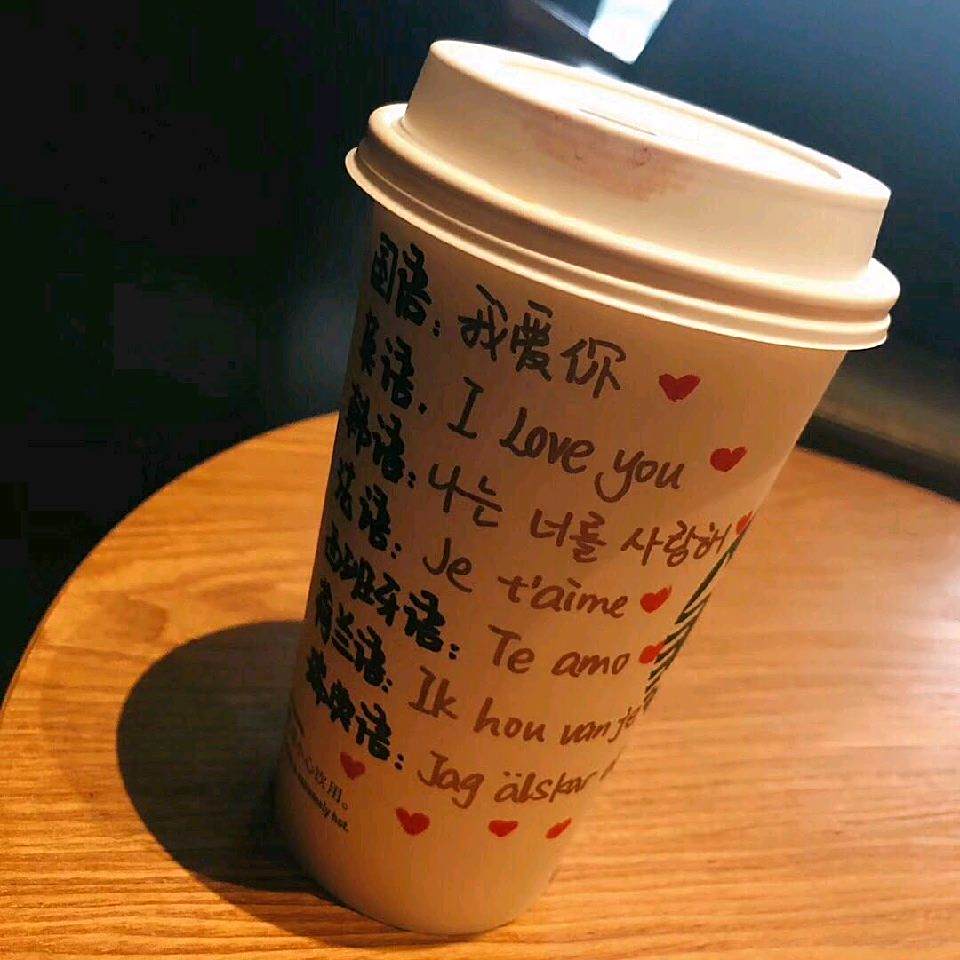 国语: 我爱你
英语. I Love you
韩语: 나는 너를 사랑해
法语: Je t'aime
西班牙语: Te amo
荷兰语: Ik hou van je
语: Jag älskar
心饮用。
extremely hot.